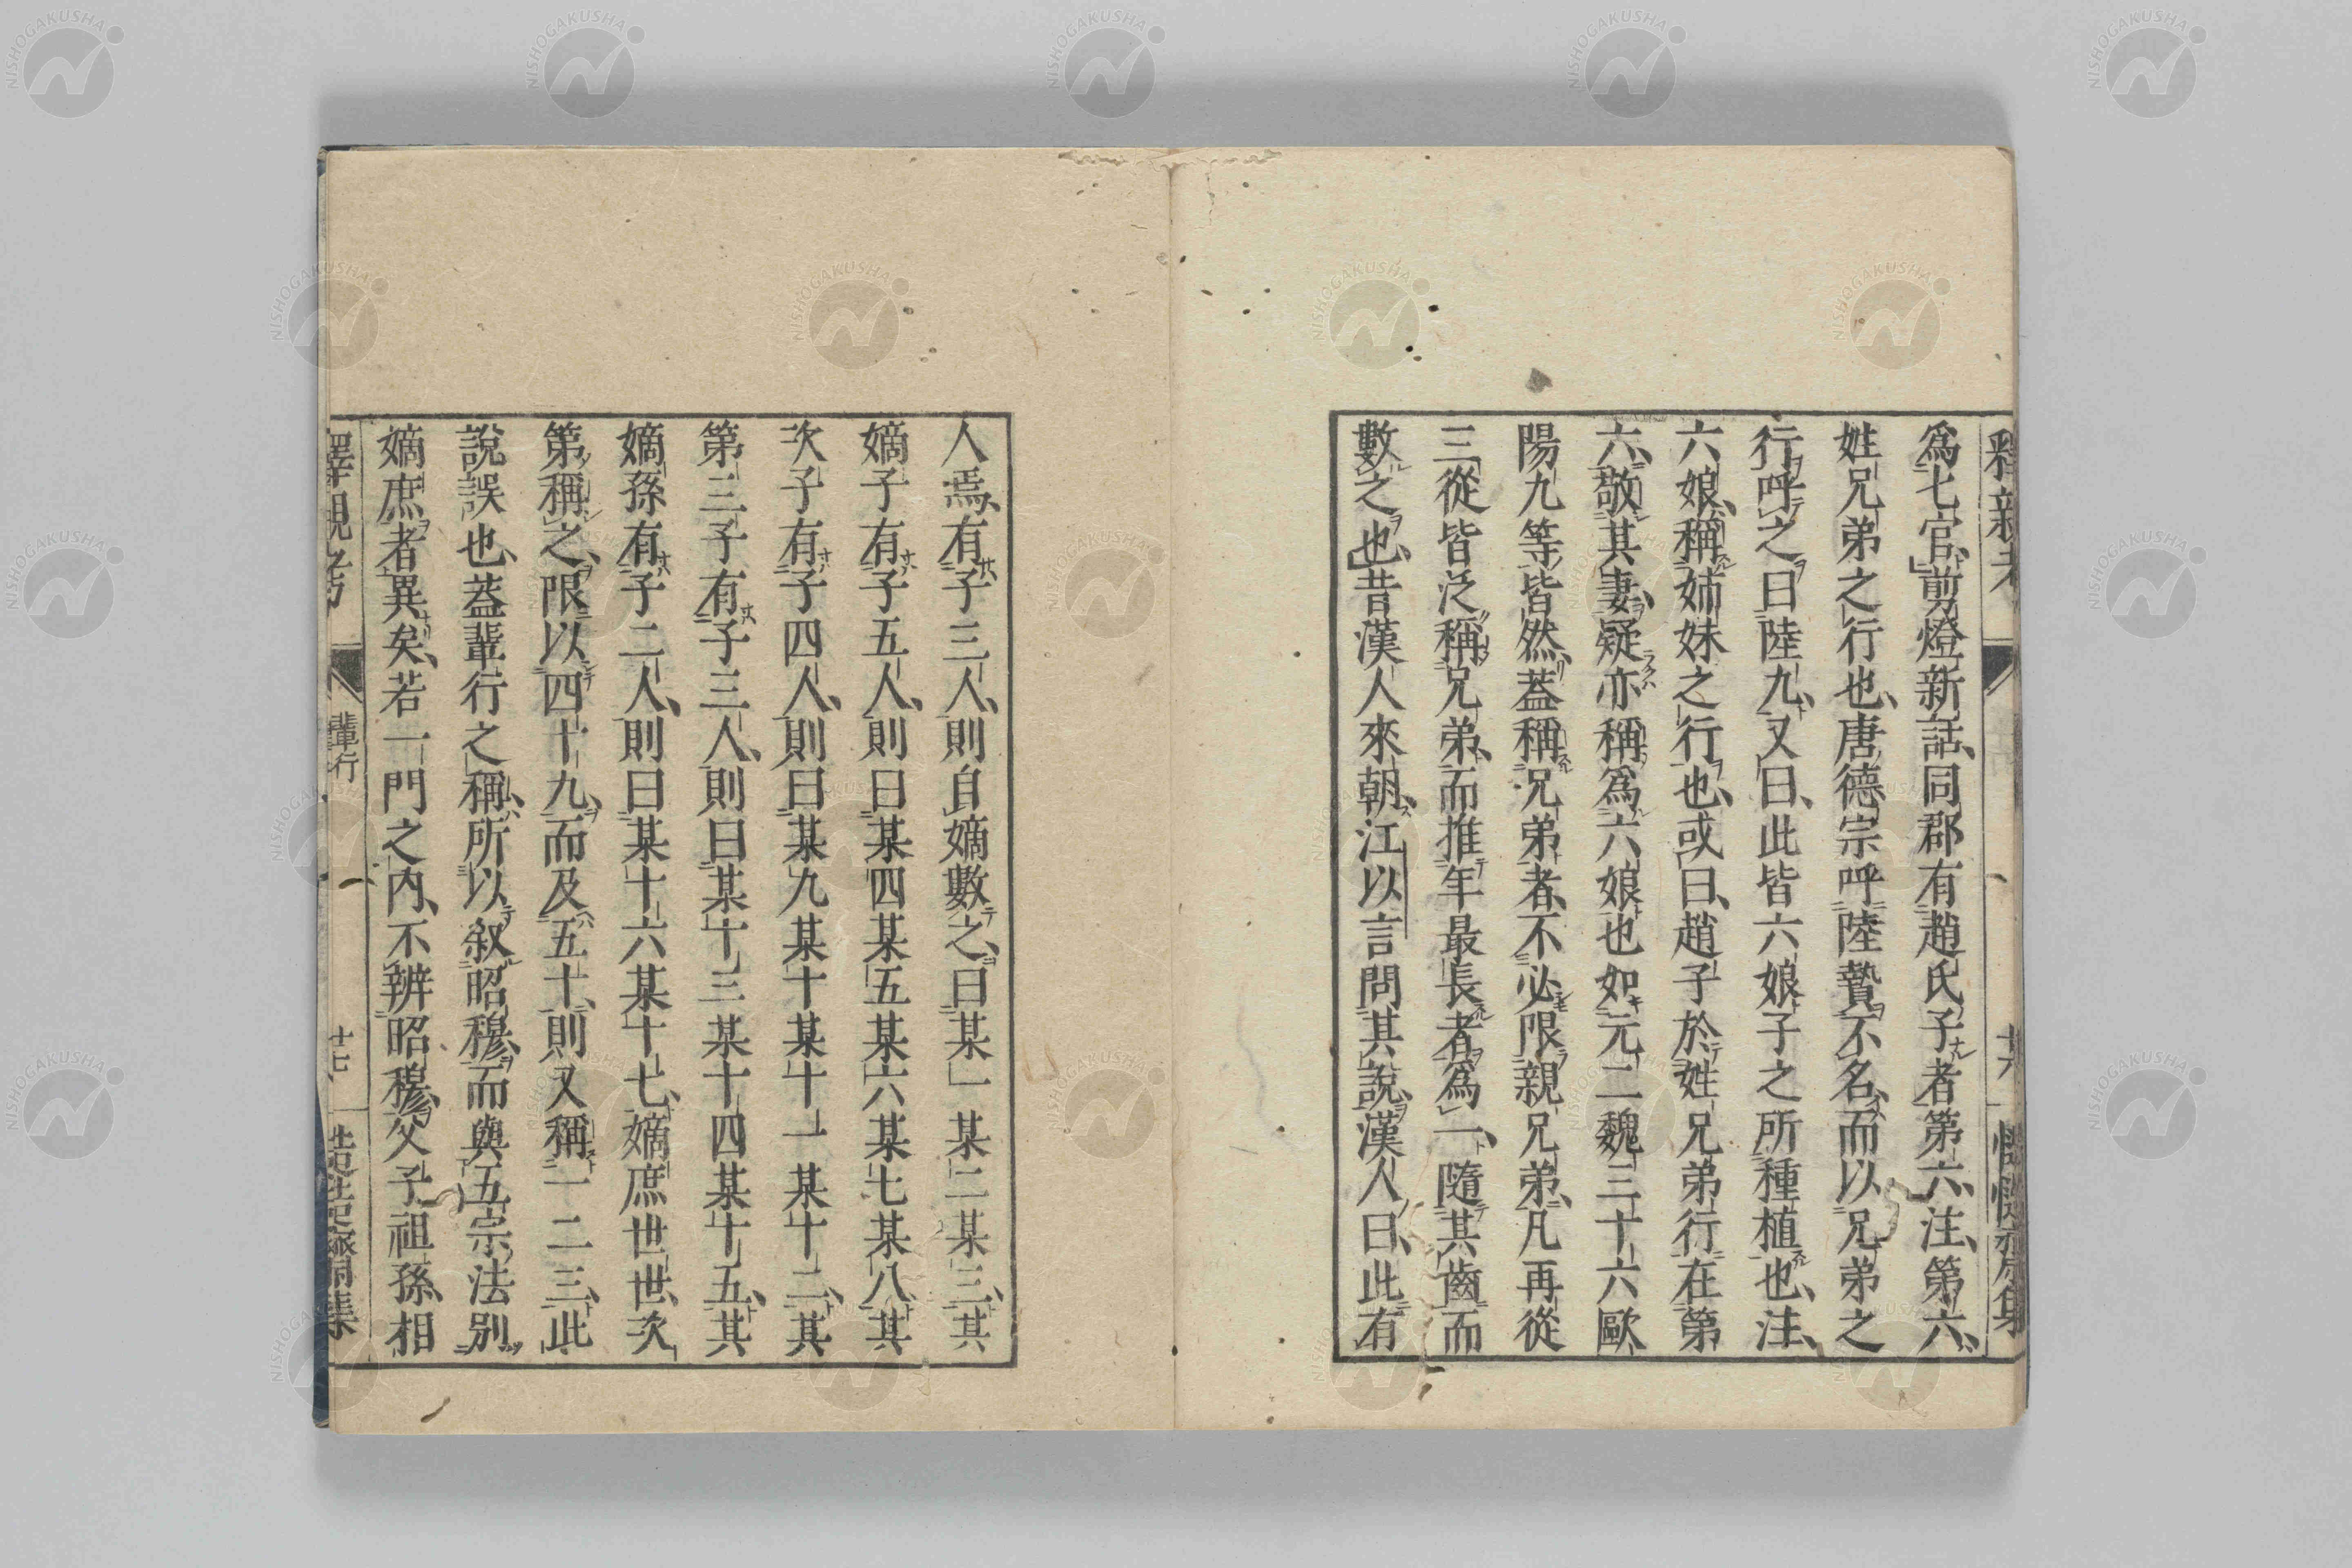 釋親考
廿六
慥慥齋集
爲七官、」剪燈新話、同郡有趙氏子者第六、注、第六、
姓兄弟之行也、唐德宗呼陸贄不名、而以兄弟之
行呼之曰陸九、又曰、此皆六娘子之所種植也、注、
六娘、稱姉妹之行也、或曰、趙子於姓兄弟行在第
六、敬其妻、疑亦稱爲六娘也如元二魏三十六歐
陽九等皆然、蓋稱兄弟者、不必限親兄弟、凡再從
三從皆泛稱兄弟、而推年最長者爲一、隨其齒而
數之也、昔漢人來朝、江以言問其說、漢人曰、此有
人焉、有子三人、則自嫡數之、曰某一某二某三、其
嫡子有子五人、則曰某四某五某六某七某八、其
次子有子四人、則曰某九某十某十一某十二、其
第三子有子三人、則曰某十三某十四某十五、其
嫡孫有子二人、則曰某十六某十七、嫡庶世世、次
第稱之、限以四十九、而及五十、則又稱一二三、此
說誤也、蓋輩行之稱、所以叙昭穆、而與五宗法別
嫡庶者異矣、若一門之內、不辨昭穆、父子祖孫、相
釋親考
輩行
廿七
慥慥齋集
NISHOGAKUSHA